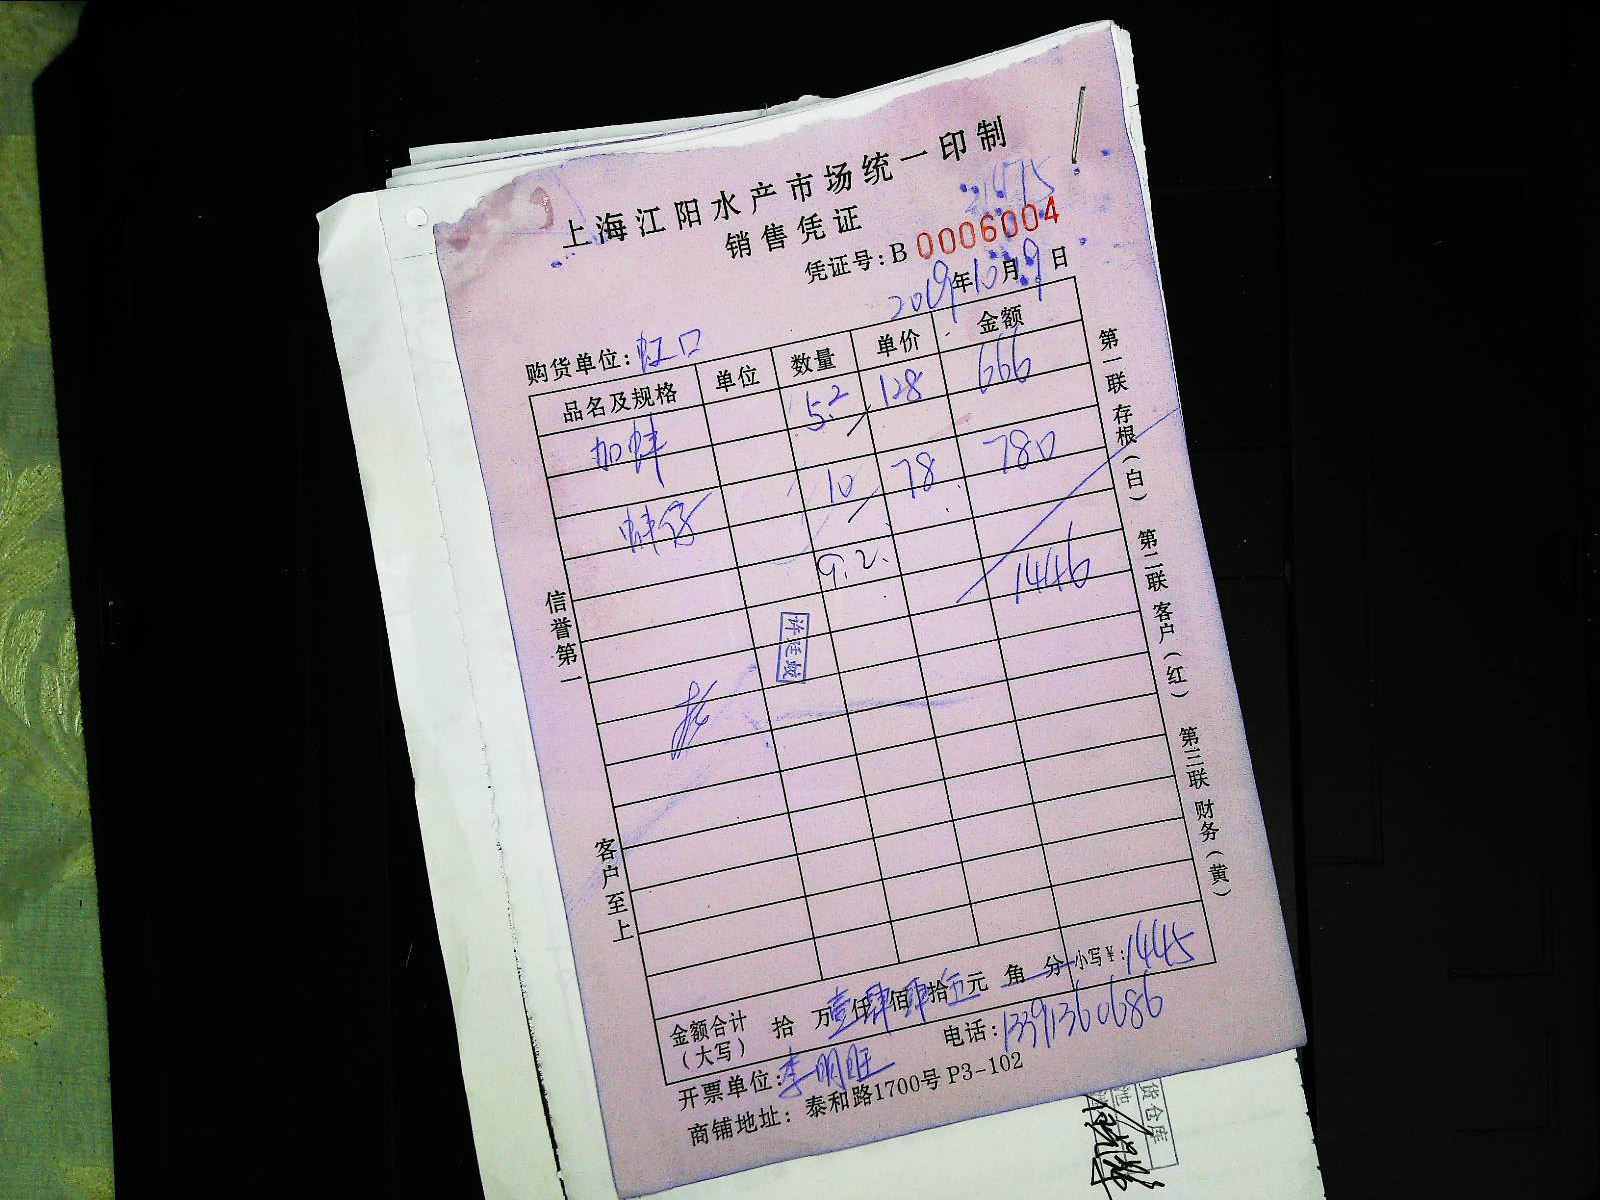 上海江阳水产市场统一印制
销售凭证
凭证号:B 0006004
2019年10月19日
购货单位:虹口
品名及规格 单位 数量 单价 金额
加蚌 5.2 128 666
蚌仔 10 78 780
9.2. 1446
许廷敏
信誉第一
客户至上
第一联 存根(白) 第二联 客户(红) 第三联 财务(黄)
金额合计(大写) 拾 万壹仟肆佰肆拾伍元 角 分 小写¥:1445
开票单位:李明旺 电话:13391360686
商铺地址:泰和路1700号 P3-102
货仓库